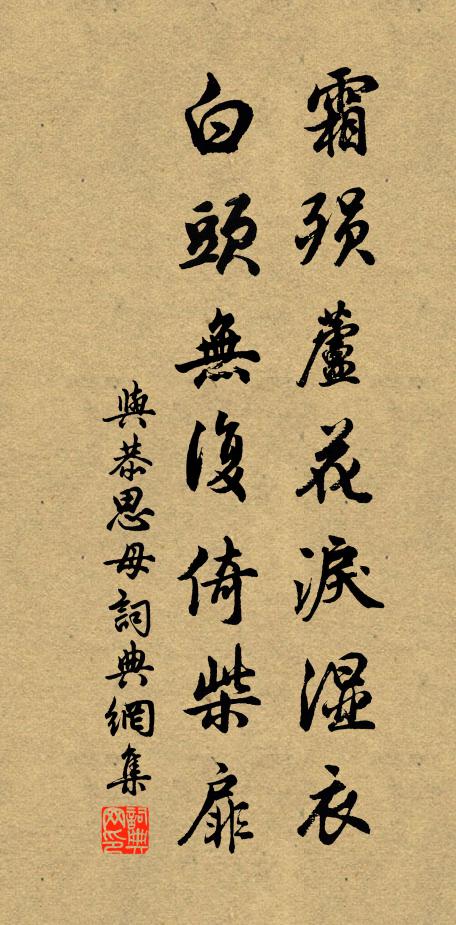 霜殞蘆花淚濕衣
白頭無復倚柴扉
與恭思母詞典網集
詞典網印